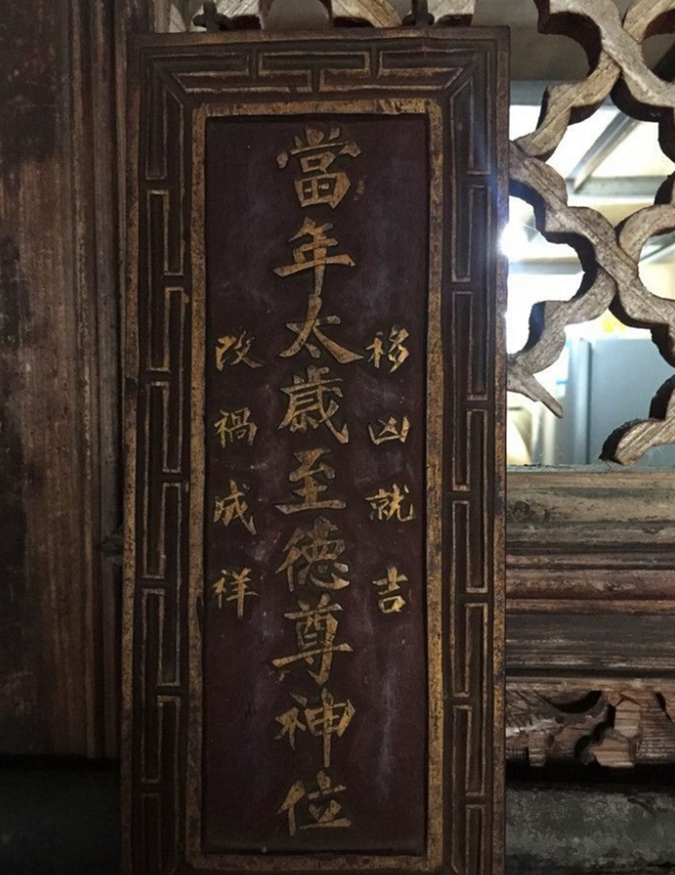 移凶就吉
當年太歲至德尊神位
改禍成祥